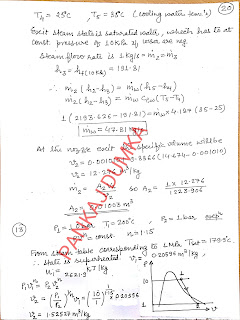 T4 = 25°C, T5 = 35°C (cooling water tem.s)
20
Exit steam state is saturated vapid, which has to at
const. pressure of 10kPa if losses are neg
Steam flow rate is 1 kg/s = ṁ2 = ṁ3
h3 = hf(10kPa) = 191.81
ṁ2 (h2-h3) = ṁw (h5-h4)
ṁ2 (h2-h3) = ṁw Cpw (T5-T4)
1 (2193.626-191.81) = ṁw × 4.187 (35-25)
ṁw = 47.81 kg/s
At the nozzle exit specific volume will be
v2 = 0.00101 + 0.8366 (14.674-0.001010)
v2 = 12.276 m³/kg
ṁ2 = A2 C2 / v2 so A2 = 1 × 12.276 / 1223.906
A2 = 0.01003 m²
13
P1 = 10 bar T1 = 200°C, P2 = 1 bar expⁿ
Pvⁿ = const. n = 1.15
From steam table corresponding to 1 MPa Tsat = 179.9°C.
∴ State is superheated v1 = 0.20596 m³/kg
u1 = 2621.9 kJ/kg
P1v1ⁿ = P2v2ⁿ
v2 = (P1/P2)^1/n v1 = (10/1)^1/1.15 0.20596
v2 = 1.52527 m³/kg
P
10
1
1
2
v
PANKAJ DUMKA